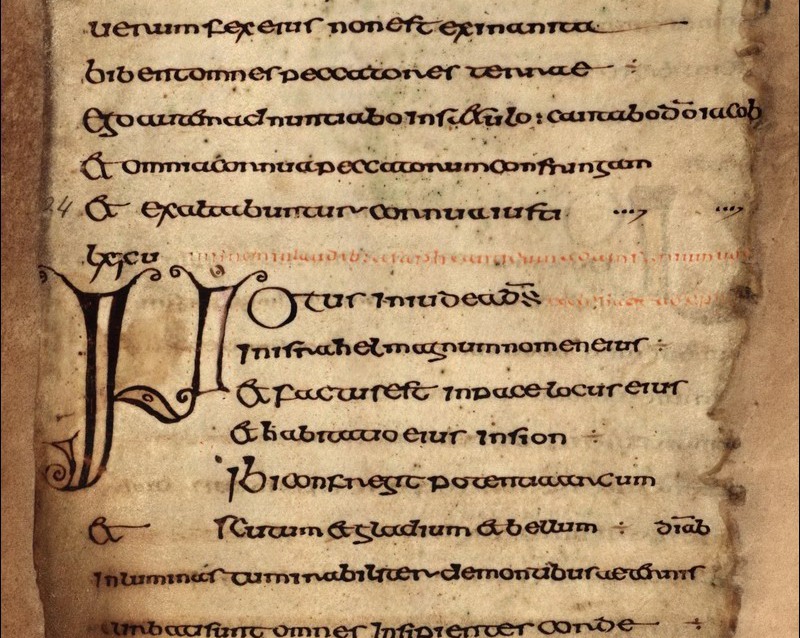 uerum fex eius non est exinanita
bibent omnes peccatores terrae ÷
Ego autem adnuntiabo in saeculo : cantabo dō iacob
& omnia cornua peccatorum confringam
24 & exaltabuntur cornua iusti
lxxu
Notus in iudea d̄s
in israhel magnum nomen eius :
& factus est in pace locus eius
& habitatio eius in sion ÷
Ibi confregit potentias arcum
& scutum & gladium & bellum ÷ diab
Inluminas tu mirabiliter demontibus aeternis
turbati sunt omnes insipientes corde ÷